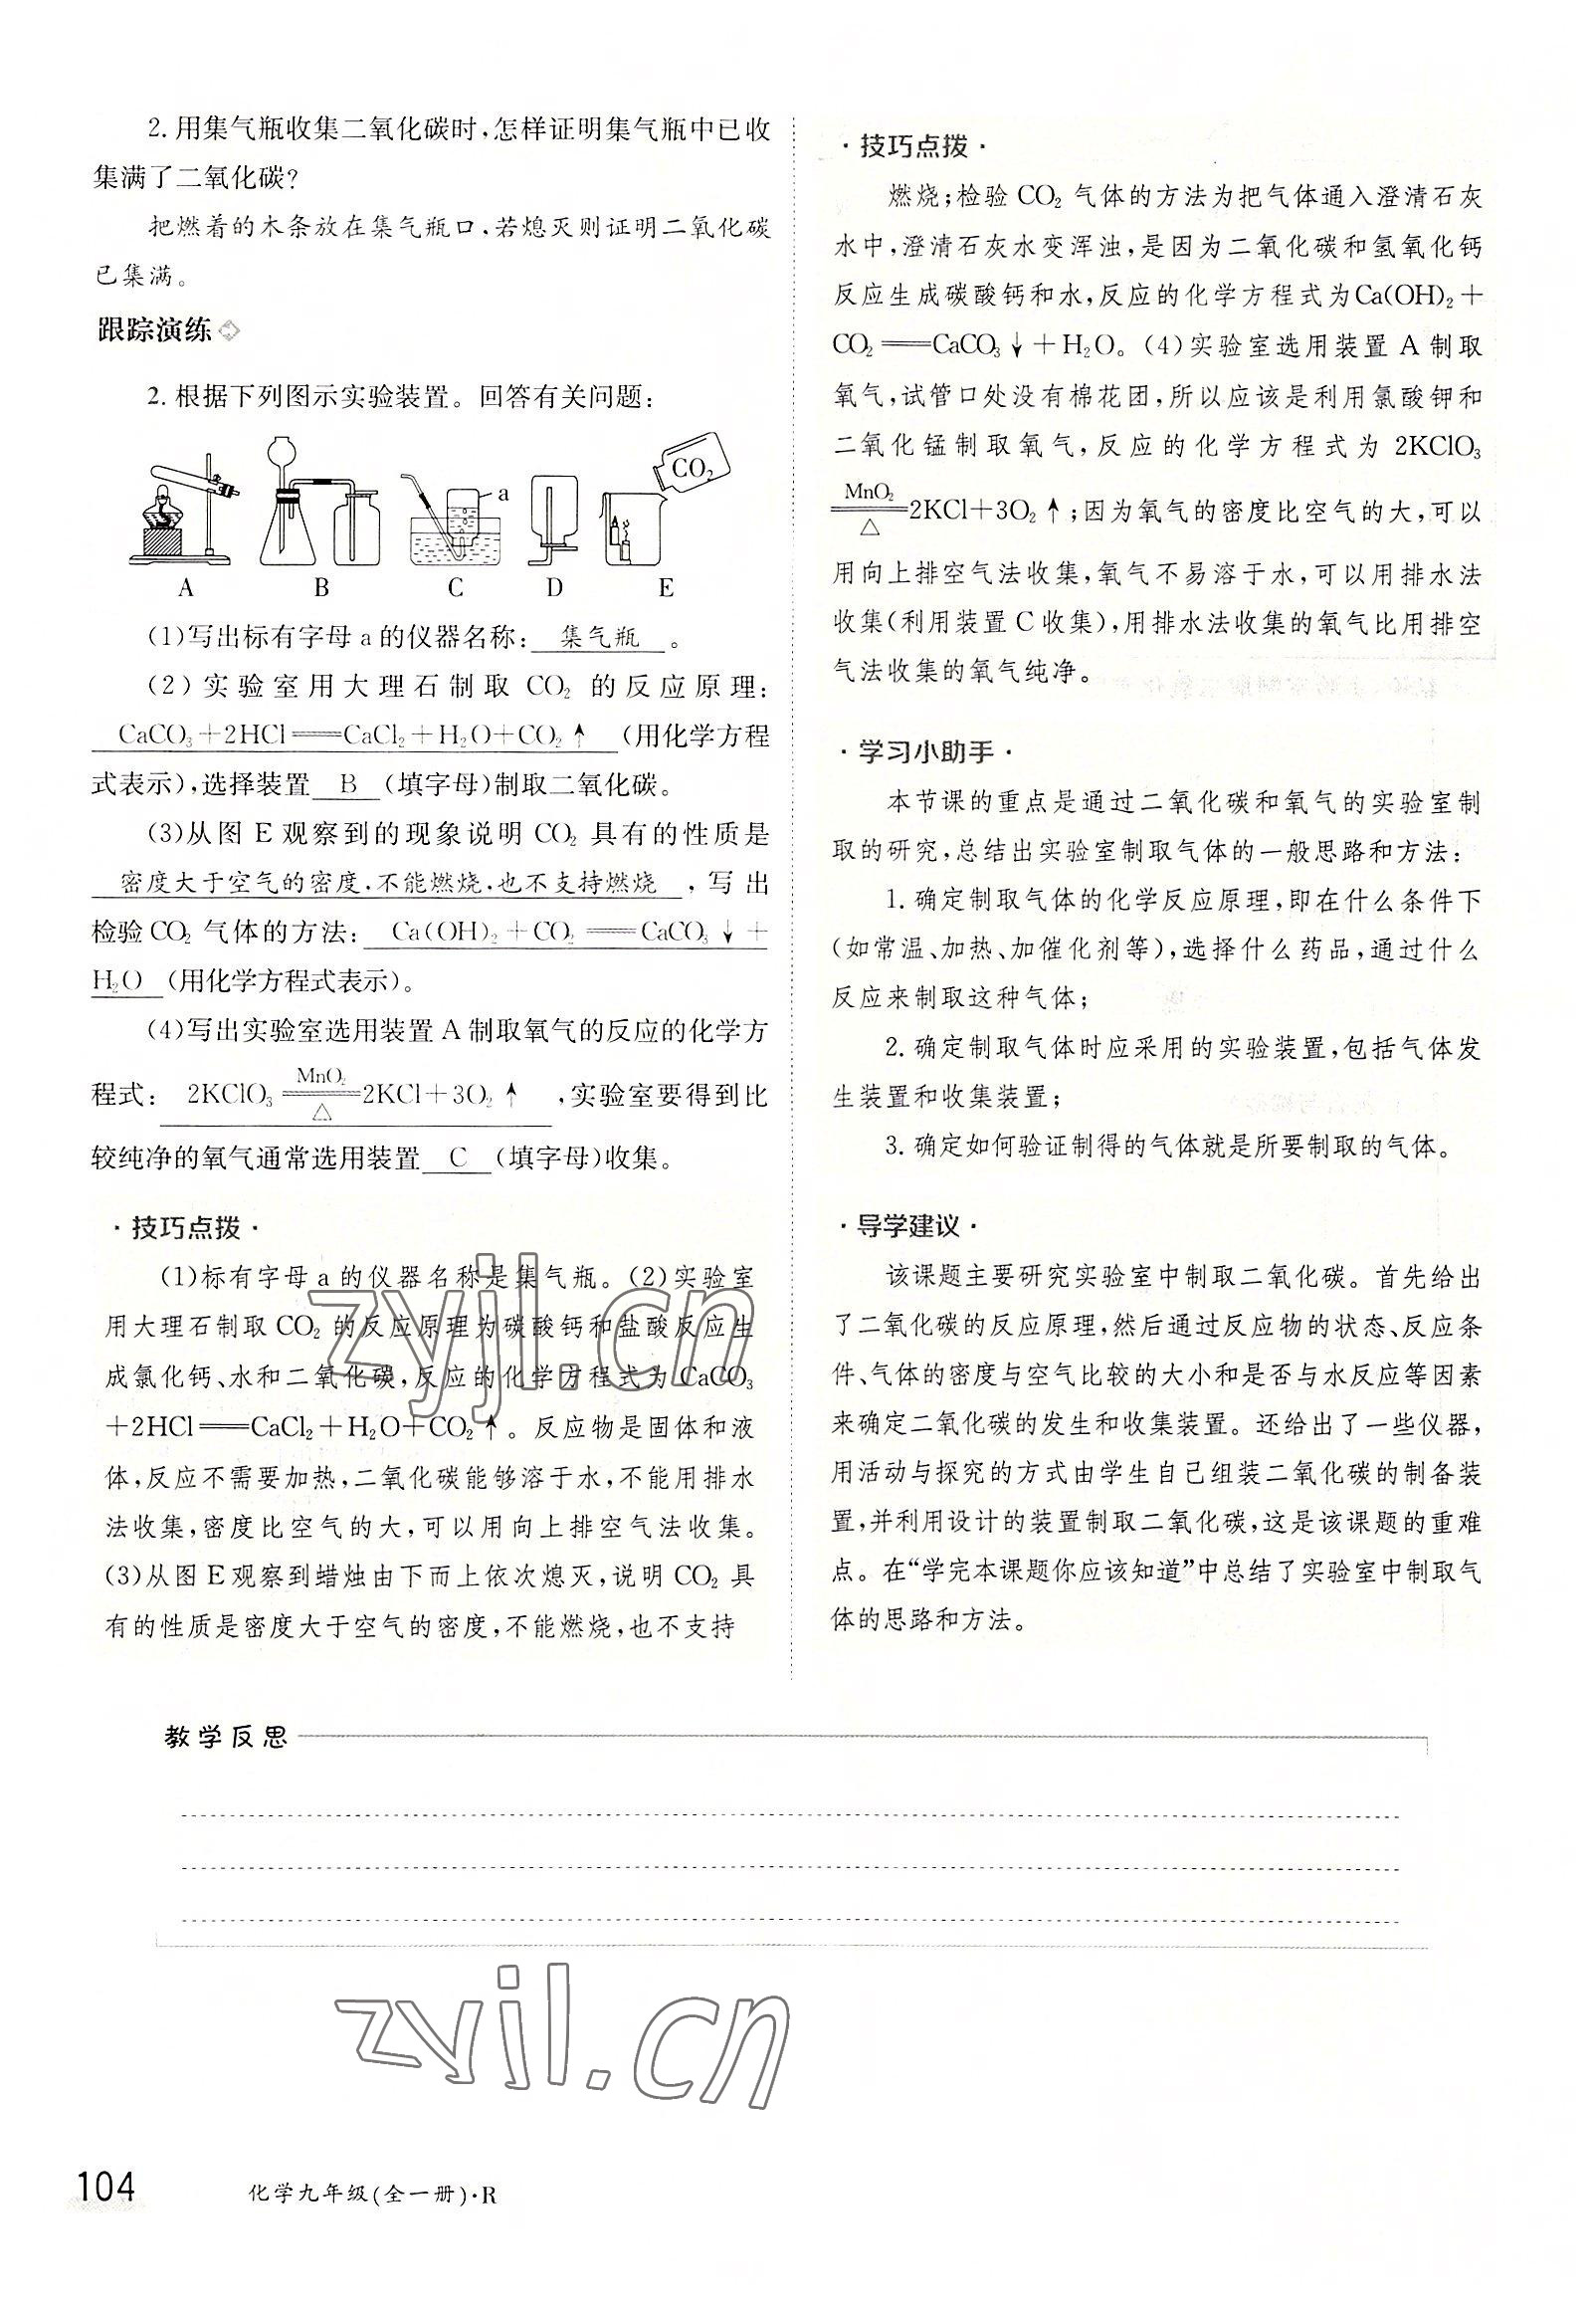 2. 用集气瓶收集二氧化碳时,怎样证明集气瓶中已收
集满了二氧化碳?
把燃着的木条放在集气瓶口,若熄灭则证明二氧化碳
已集满。
跟踪演练
2. 根据下列图示实验装置。回答有关问题:
a
CO₂
A B C D E
(1)写出标有字母 a 的仪器名称: 集气瓶 。
(2) 实验室用大理石制取 CO₂ 的反应原理:
CaCO₃+2HCl══CaCl₂+H₂O+CO₂↑ (用化学方程
式表示),选择装置 B (填字母)制取二氧化碳。
(3)从图 E 观察到的现象说明 CO₂ 具有的性质是
密度大于空气的密度,不能燃烧,也不支持燃烧 ,写出
检验 CO₂ 气体的方法: Ca(OH)₂+CO₂══CaCO₃↓+
H₂O (用化学方程式表示)。
(4)写出实验室选用装置 A 制取氧气的反应的化学方
MnO₂
程式: 2KClO₃══2KCl+3O₂↑ ,实验室要得到比
△
较纯净的氧气通常选用装置 C (填字母)收集。
·技巧点拨·
(1)标有字母 a 的仪器名称是集气瓶。(2)实验室
用大理石制取 CO₂ 的反应原理为碳酸钙和盐酸反应生
成氯化钙、水和二氧化碳,反应的化学方程式为 CaCO₃
+2HCl══CaCl₂+H₂O+CO₂↑。反应物是固体和液
体,反应不需要加热,二氧化碳能够溶于水,不能用排水
法收集,密度比空气的大,可以用向上排空气法收集。
(3)从图 E 观察到蜡烛由下而上依次熄灭,说明 CO₂ 具
有的性质是密度大于空气的密度,不能燃烧,也不支持
·技巧点拨·
燃烧;检验 CO₂ 气体的方法为把气体通入澄清石灰
水中,澄清石灰水变浑浊,是因为二氧化碳和氢氧化钙
反应生成碳酸钙和水,反应的化学方程式为Ca(OH)₂+
CO₂══CaCO₃↓+H₂O。(4)实验室选用装置 A 制取
氧气,试管口处没有棉花团,所以应该是利用氯酸钾和
二氧化锰制取氧气,反应的化学方程式为 2KClO₃
MnO₂
══2KCl+3O₂↑;因为氧气的密度比空气的大,可以
△
用向上排空气法收集,氧气不易溶于水,可以用排水法
收集(利用装置 C 收集),用排水法收集的氧气比用排空
气法收集的氧气纯净。
·学习小助手·
本节课的重点是通过二氧化碳和氧气的实验室制
取的研究,总结出实验室制取气体的一般思路和方法:
1. 确定制取气体的化学反应原理,即在什么条件下
(如常温、加热、加催化剂等),选择什么药品,通过什么
反应来制取这种气体;
2. 确定制取气体时应采用的实验装置,包括气体发
生装置和收集装置;
3. 确定如何验证制得的气体就是所要制取的气体。
·导学建议·
该课题主要研究实验室中制取二氧化碳。首先给出
了二氧化碳的反应原理,然后通过反应物的状态、反应条
件、气体的密度与空气比较的大小和是否与水反应等因素
来确定二氧化碳的发生和收集装置。还给出了一些仪器,
用活动与探究的方式由学生自己组装二氧化碳的制备装
置,并利用设计的装置制取二氧化碳,这是该课题的重难
点。在“学完本课题你应该知道”中总结了实验室中制取气
体的思路和方法。
教学反思
zyjl.cn
zyjl.cn
104
化学九年级(全一册)·R